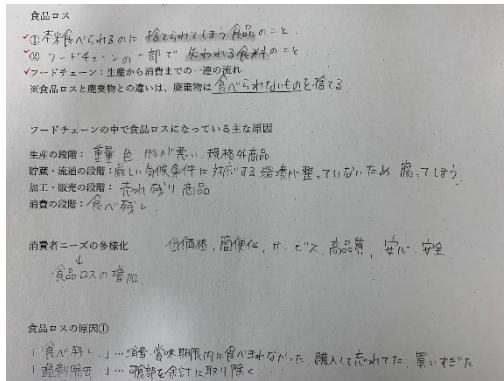 食品ロス
①本来食べられるのに捨てられてしまう食品のこと
②フードチェーンの一部で失われる食料のこと
フードチェーン：生産から消費までの一連の流れ
※食品ロスと廃棄物との違いは、廃棄物は食べられないものを捨てる
フードチェーンの中で食品ロスになっている主な原因
生産の段階：重量 色 形が悪い 規格外商品
貯蔵・流通の段階：厳しい気候条件に対応する環境が整っていないため 腐ってしまう
加工・販売の段階：売れ残り商品
消費の段階：食べ残し
消費者ニーズの多様化 低価格, 簡便化, サービス, 高品質, 安心 安全
↓
食品ロスの増加
食品ロスの原因①
「食べ残し」…消費・賞味期限内に食べきれなかった 購入して忘れてた 買いすぎた
「過剰除去」…可食部を余計に取り除く